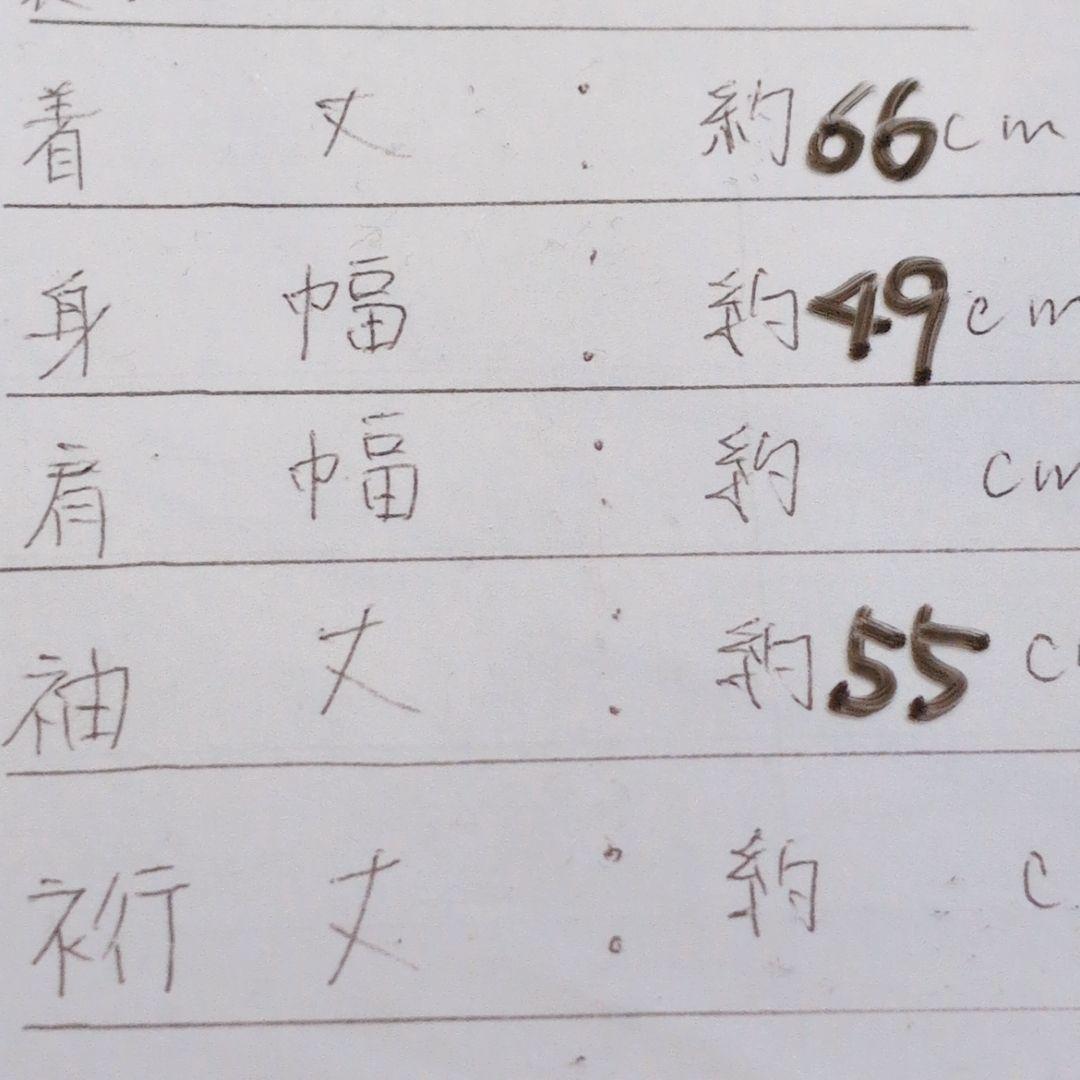 着 丈 : 約66cm
身 幅 : 約49cm
肩 幅 : 約 cm
袖 丈 : 約55c
裄 丈 : 約 c